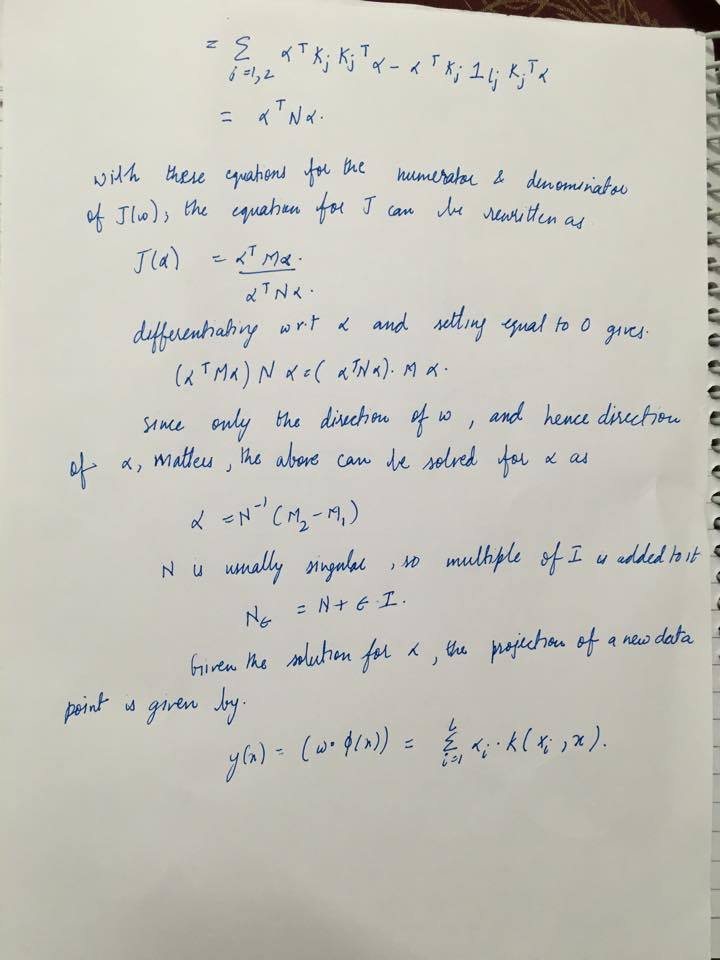 = Σ_{i=1,2} α^T K_j K_j^T α - α^T K_j 1_{l_j} K_j^T α
= α^T N α.
with these equations for the numerator & denominator
of J(ω), the equation for J can be rewritten as
J(α) = α^T M α. / α^T N α.
differentiating w.r.t α and setting equal to 0 gives.
(α^T M α) N α = (α^T N α). M α.
since only the direction of ω, and hence direction
of α, matters, the above can be solved for α as
α = N^{-1} (M_2 - M_1)
N is usually singular, so multiple of I is added to it
N_ϵ = N + ϵ·I.
Given the solution for α, the projection of a new data
point is given by.
y(x) = (ω·ϕ(x)) = Σ_{i=1}^{L} α_i · k(x_i, x).